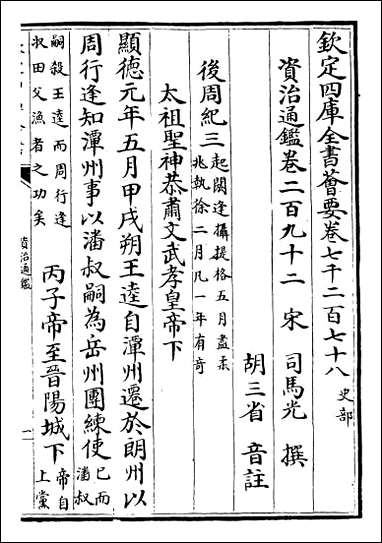 欽定四庫全書薈要卷七千二百七十八 史部
資治通鑑卷二百九十二 宋 司馬光 撰
胡三省 音註
後周紀三 起閼逢攝提格五月盡柔
兆執徐二月凡一年有奇
太祖聖神恭肅文武孝皇帝下
顯德元年五月甲戌朔王逵自潭州遷於朗州以
周行逢知潭州事以潘叔嗣為岳州團練使 已而
潘叔
嗣殺王逵而周行逢
收田父漁者之功矣
丙子帝至晉陽城下 帝自
上黨
資治通鑑
一